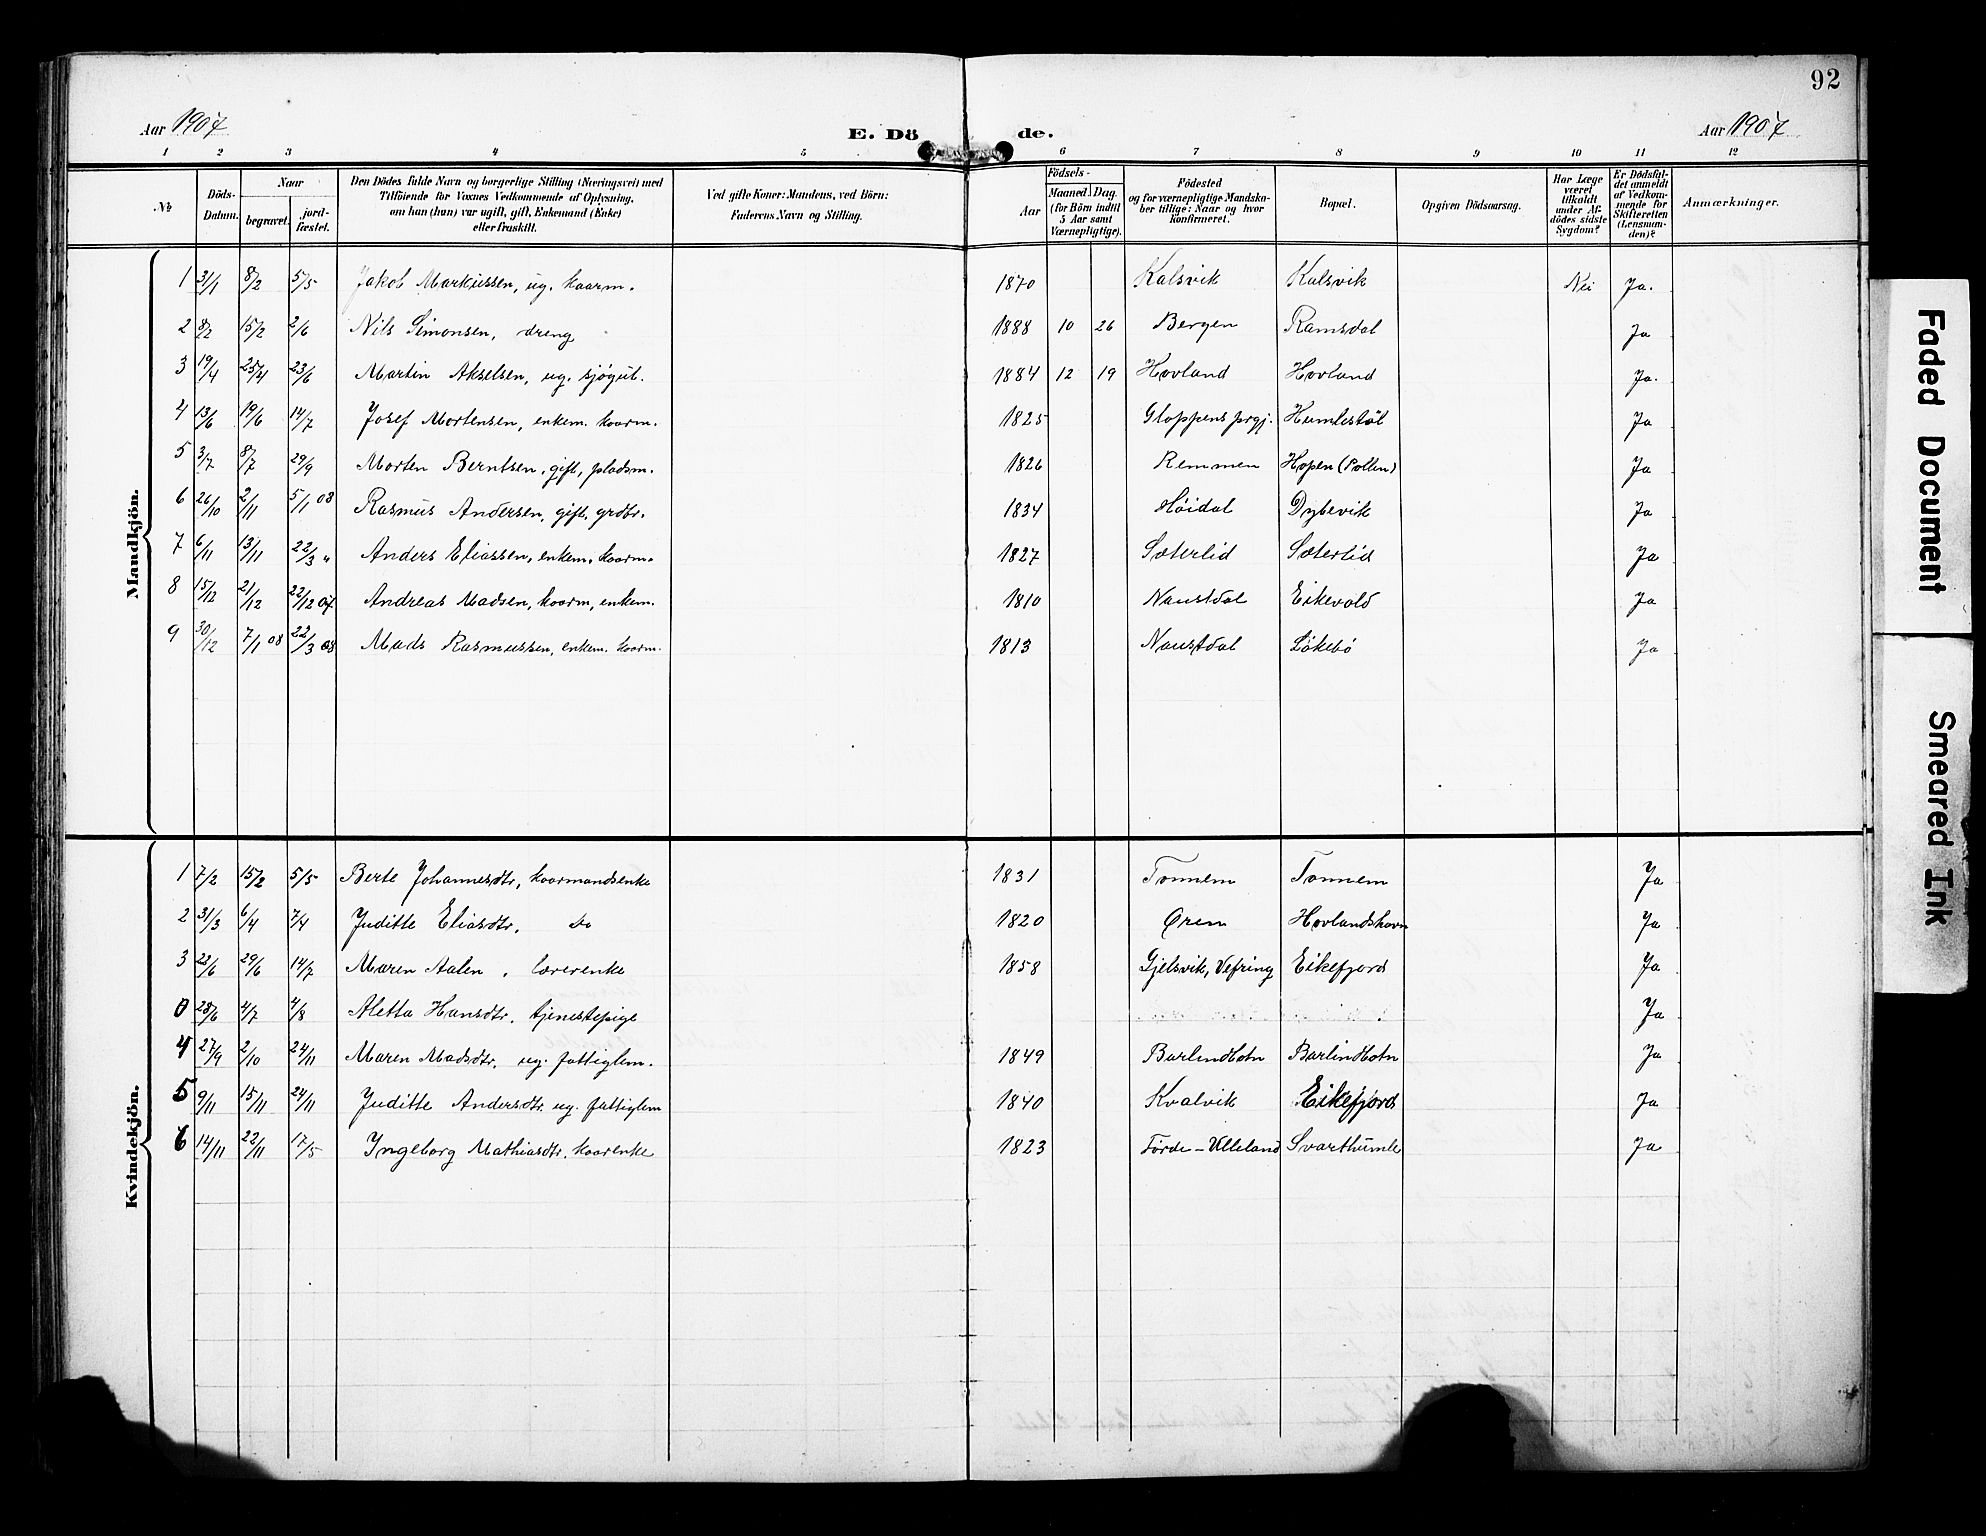 92
Aar 1907 E. Dö de. Aar 1907
1 2 3 4 5 6 7 8 9 10 11 12
№
Döds-Datum.
Naar
begravet.
jord-fæstet.
Den Dödes fulde Navn og borgerlige Stilling (Næringsvei) med
Tilföiende for Voxnes Vedkommende af Oplysning,
om han (hun) var ugift, gift, Enkemand (Enke)
eller fraskilt.
Ved gifte Koner: Mandens, ved Börn:
Faderens Navn og Stilling.
Födsels-
Aar
Maaned. Dag.
(for Börn indtil
5 Aar samt
Værnepligtige).
Födested
og for værnepligtige Mandska-
ber tillige: Naar og hvor
konfirmeret.
Bopæl.
Opgiven Dödsaarsag.
Har Læge
været
tilkaldt
under Af-
dödes sidste
Sygdom?
Er Dödsfal-
det anmeldt
af Vedkom-
mende for
Skifteretten
(Lensman-
den)?
Anmærkninger.
Mandkjön.
1 31/1 8/2 5/5 Jakob Markussen, ug. kaarm. 1870 Kalsvik Kalsvik Nei Ja.
2 8/2 15/2 2/6 Nils Simonsen, dreng 1888 10 26 Bergen Ramsdal Ja
3 19/4 25/4 23/6 Martin Akselsen, ug. sjøgut. 1884 12 19 Hovland Hovland Ja.
4 13/6 19/6 14/7 Josef Mortensen, enkem. kaarm. 1825 Gloppens prgj. Humlestøl Ja
5 3/7 8/7 29/9 Morten Berntsen, gift, pladsm. 1826 Remmen Hopen (Pollen) Ja
6 26/10 2/11 5/1 08 Rasmus Andersen, gift, grdbr. 1834 Høidal Dybevik Ja
7 6/11 13/11 22/3 " Anders Eliassen, enkem. kaarm. 1827 Sæterlid Sæterlid Ja
8 15/12 21/12 22/12 07 Andreas Madsen, kaarm, enkem. 1810 Naustdal Eikevold Ja
9 30/12 7/1 08 22/3 08 Mads Rasmussen, enkem. kaarm. 1813 Naustdal Løkebø Ja
Kvindekjön.
1 7/2 15/2 5/5 Berte Johannesdtr, kaarmandsenke 1831 Tonnem Tonnem Ja
2 31/3 6/4 7/4 Juditte Eliasdtr. do 1820 Øren Hovlandshavn Ja
3 23/6 29/6 14/7 Maren Aalen, lærerenke 1858 Gjelsvik, Vefring Eikefjord Ja
0 28/6 4/7 4/8 Aletta Hansdtr. tjenestepige Ja
4 27/9 2/10 24/11 Maren Madsdtr. ug. fattiglem. 1849 Barlindbotn Barlindbotn Ja
5 9/11 15/11 24/11 Juditte Andersdtr. ug. fattiglem 1840 Kvalvik Eikefjord Ja
6 14/11 22/11 17/5 Ingeborg Mathiasdtr. kaarenke 1823 Førde-Ulleland Svarthumle Ja
Faded Document
Smeared Ink